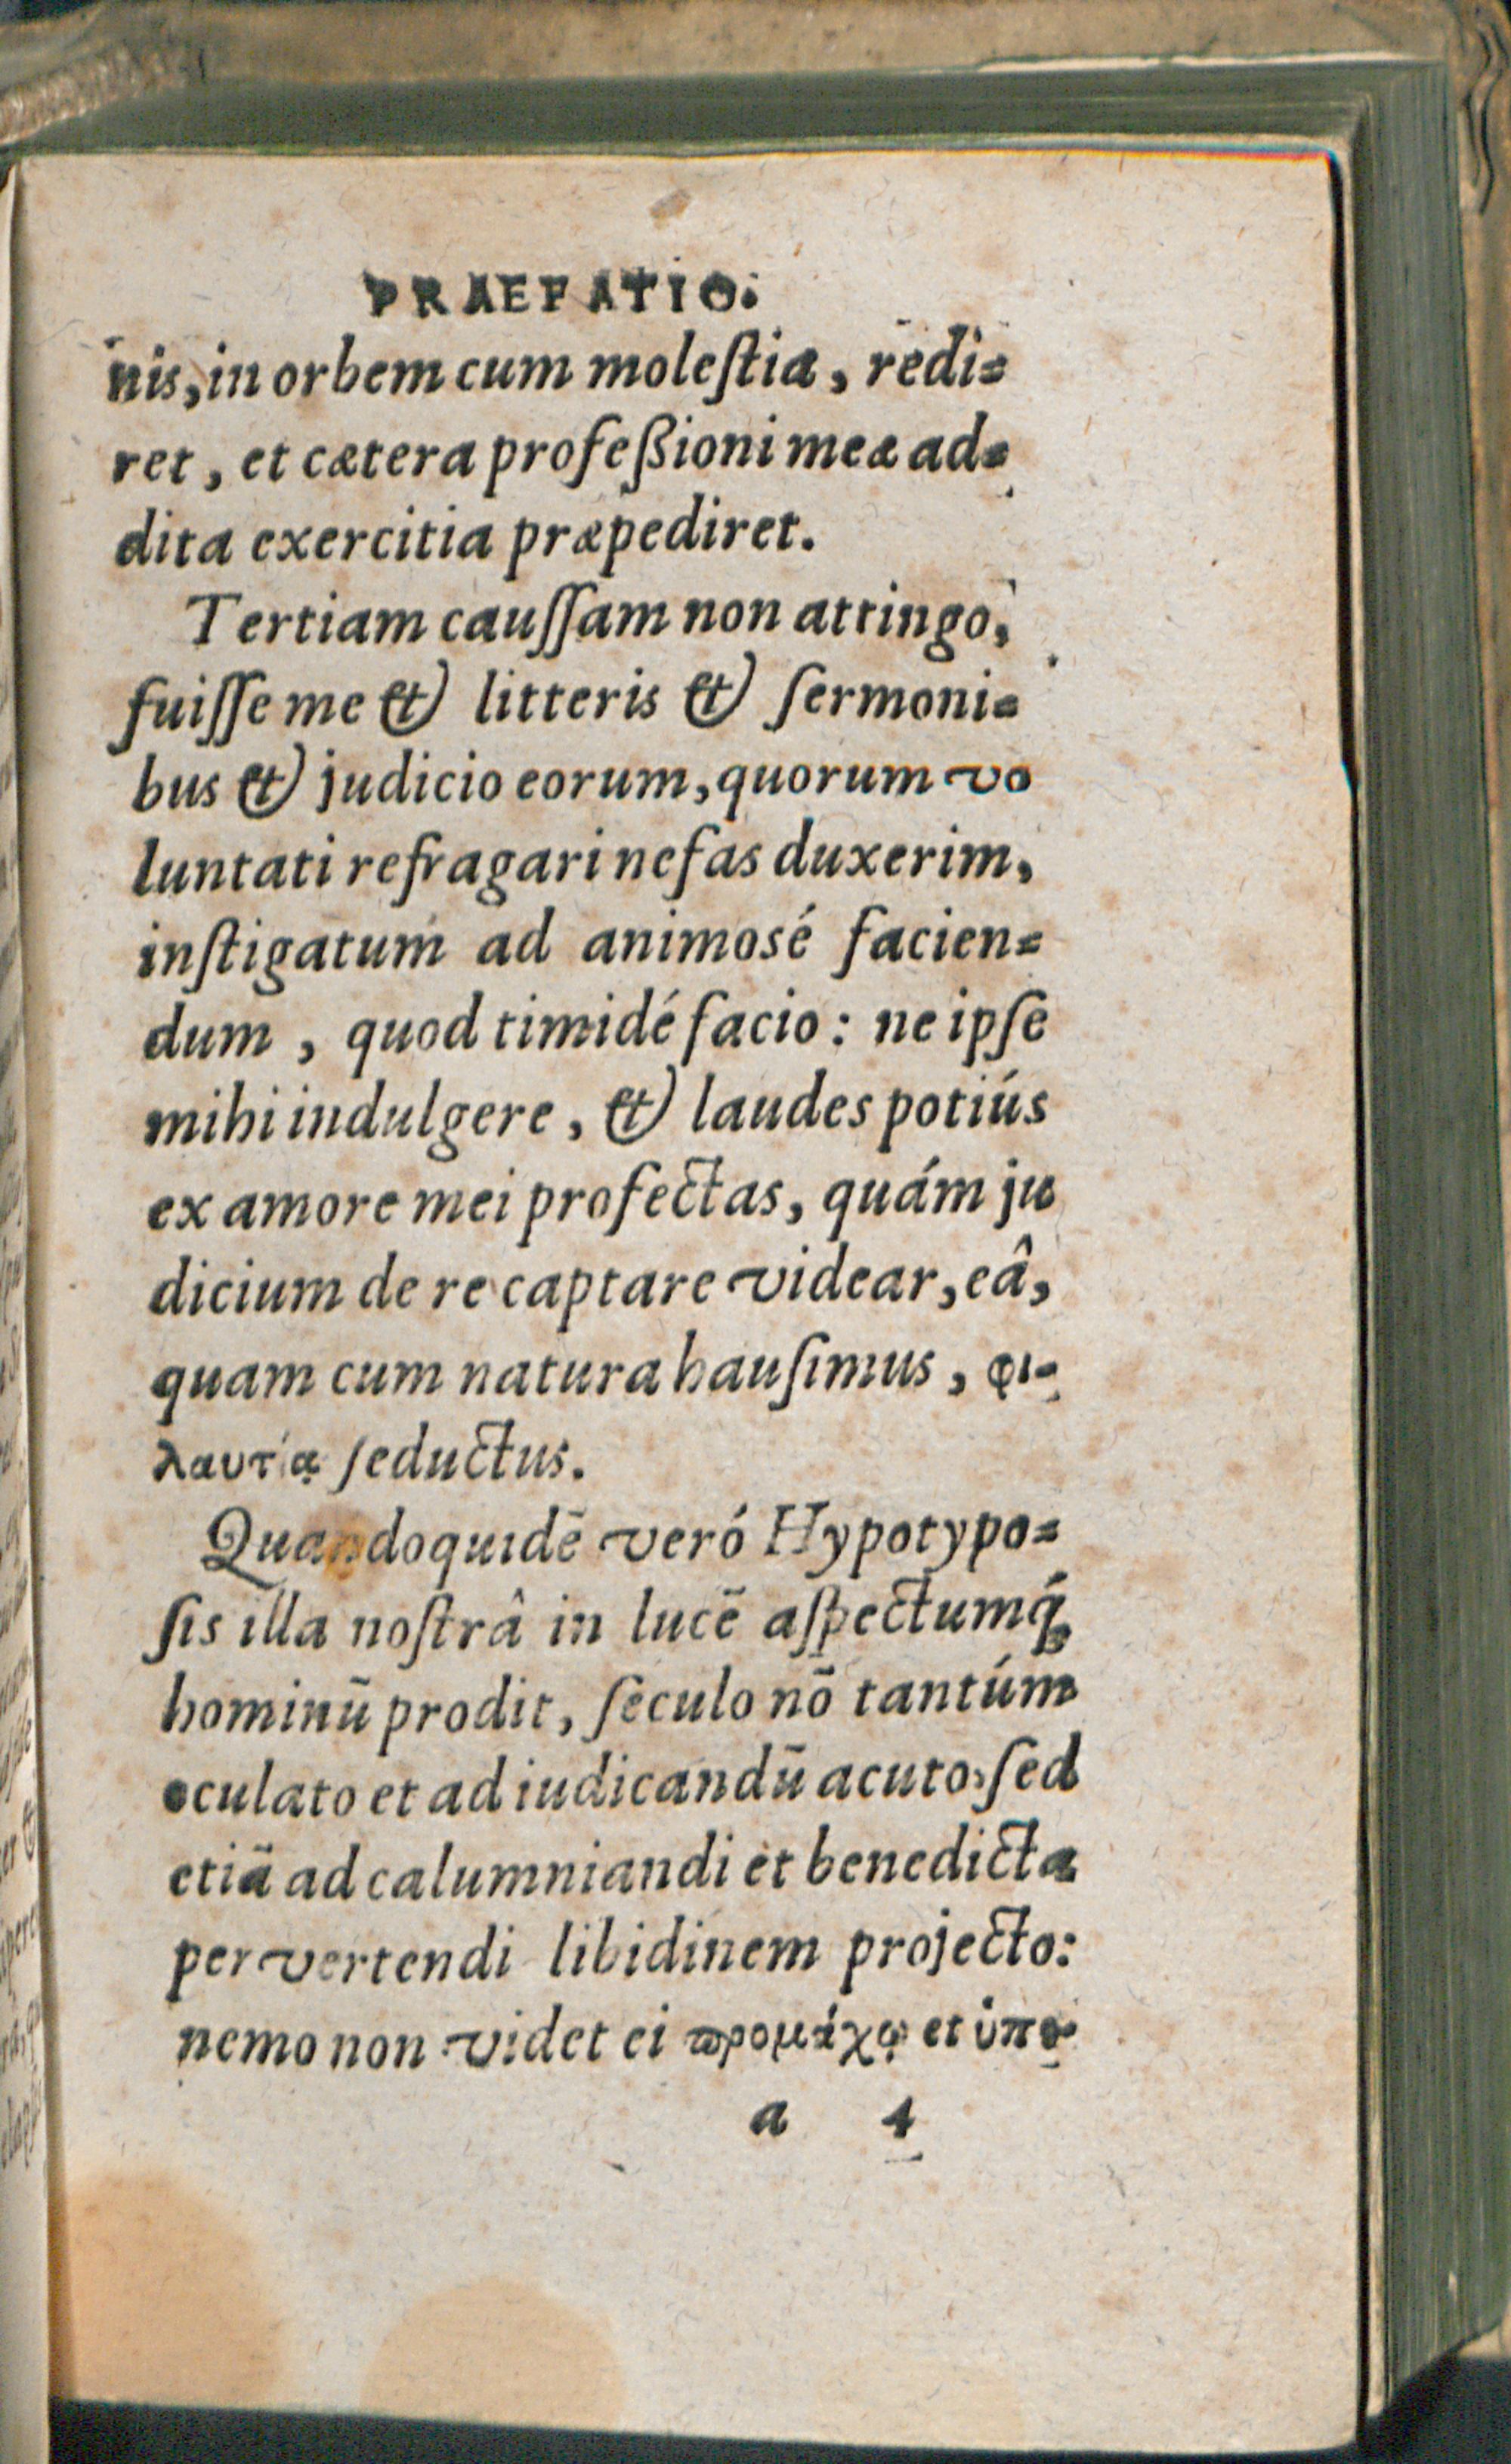 PRAEFATIO.
nis, in orbem cum moleſtia, redi⸗
ret, et cætera profeßioni meæ ad⸗
dita exercitia præpediret.
Tertiam cauſſam non attingo,
fuiſſe me & litteris & ſermoni⸗
bus & judicio eorum, quorum vo
luntati refragari nefas duxerim,
inſtigatum ad animosé facien⸗
dum, quod timidé facio: ne ipſe
mihi indulgere, & laudes potiús
ex amore mei profectas, quám ju
dicium de re captare videar, eâ,
quam cum natura hauſimus, φι-
λαυτίᾳ ſeductus.
Quandoquidē veró Hypotypo⸗
ſis illa noſtrâ in lucē aſpectumq́;
hominū prodit, ſeculo nō tantúm
oculato et ad iudicandū acuto, ſed
etiā ad calumniandi et benedicta
pervertendi libidinem projecto:
nemo non videt ei ϖρομάχῳ et ὑπε-
a 4